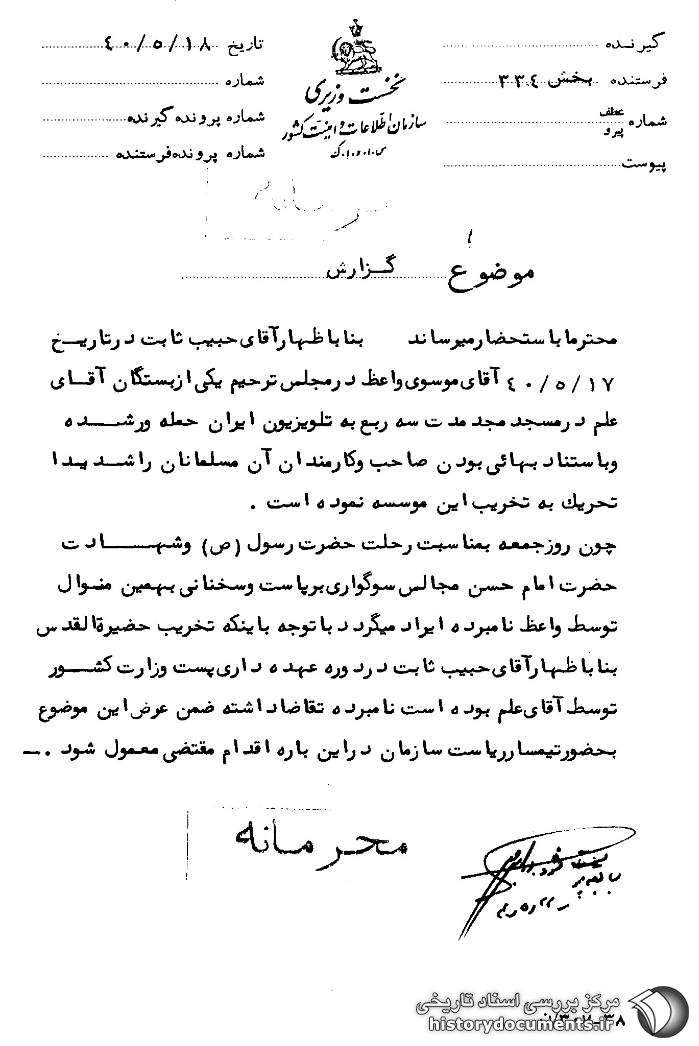 گیرنده
فرستنده بخش ۳۳٤
شماره عطف پیرو
پیوست
نخست وزیری
سازمان اطلاعات و امنیت کشور
س.ا.و.ا.ک
تاریخ ٤۰/۵/۱۸
شماره
شماره پرونده گیرنده
شماره پرونده فرستنده
موضوع گزارش
محترما باستحضار میرساند بنا باظهار آقای حبیب ثابت در تاریخ
٤۰/۵/۱۷ آقای موسوی واعظ در مجلس ترحیم یکی از بستگان آقای
علم در مسجد مجد مدت سه ربع به تلویزیون ایران حمله ور شده
و باستناد بهائی بودن صاحب و کارمندان آن مسلمانان را شدیدا
تحریك به تخریب این موسسه نموده است .
چون روز جمعه بمناسبت رحلت حضرت رسول (ص) و شهادت
حضرت امام حسن مجالس سوگواری برپاست و سخنانی بهمین منوال
توسط واعظ نامبرده ایراد میگردد با توجه باینکه تخریب حضیرةالقدس
بنا باظهار آقای حبیب ثابت در دوره عهده داری پست وزارت کشور
توسط آقای علم بوده است نامبرده تقاضا داشته ضمن عرض این موضوع
بحضور تیمسار ریاست سازمان در این باره اقدام مقتضی معمول شود .ــ
محرمانه
مرکز بررسی اسناد تاریخی
historydocuments.ir